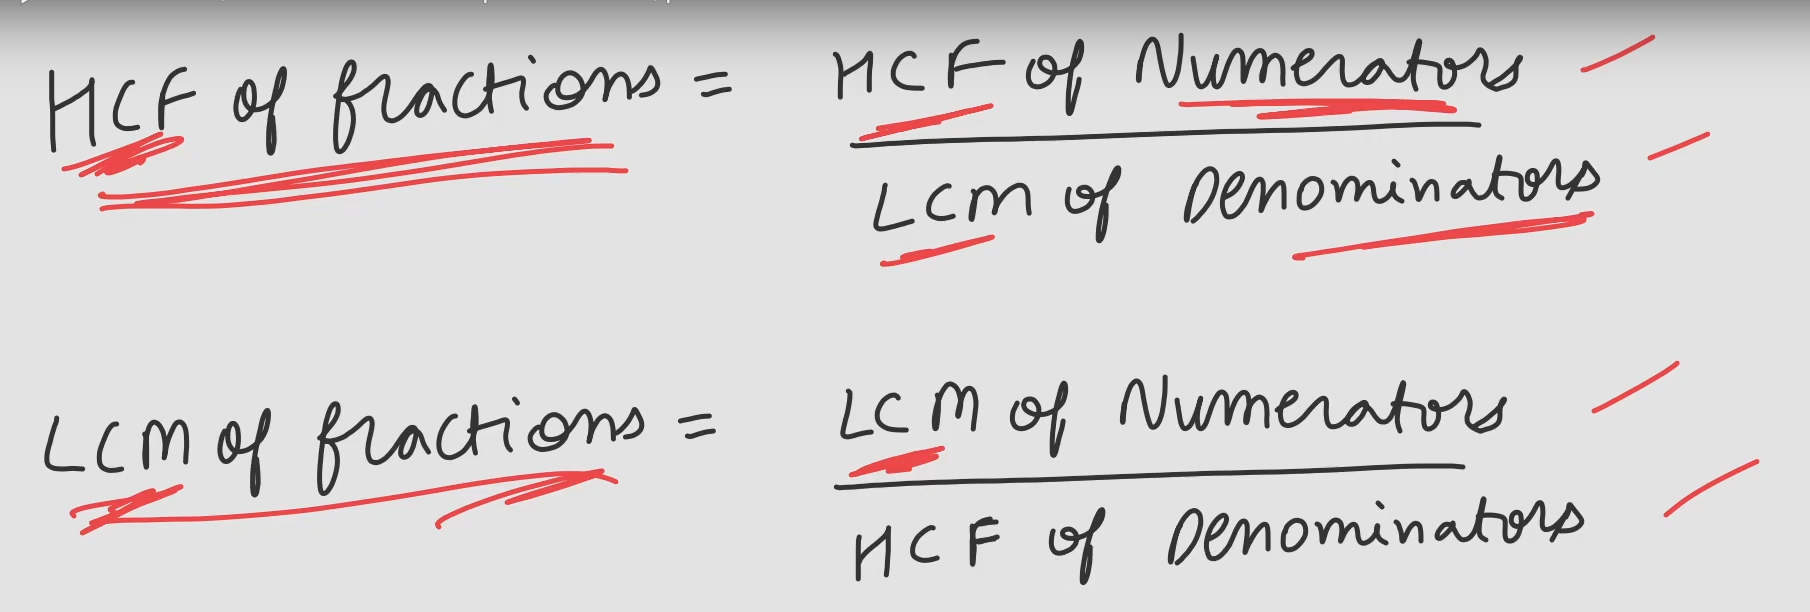 HCF of fractions = HCF of Numerators
LCM of Denominators
LCM of fractions = LCM of Numerators
HCF of Denominators